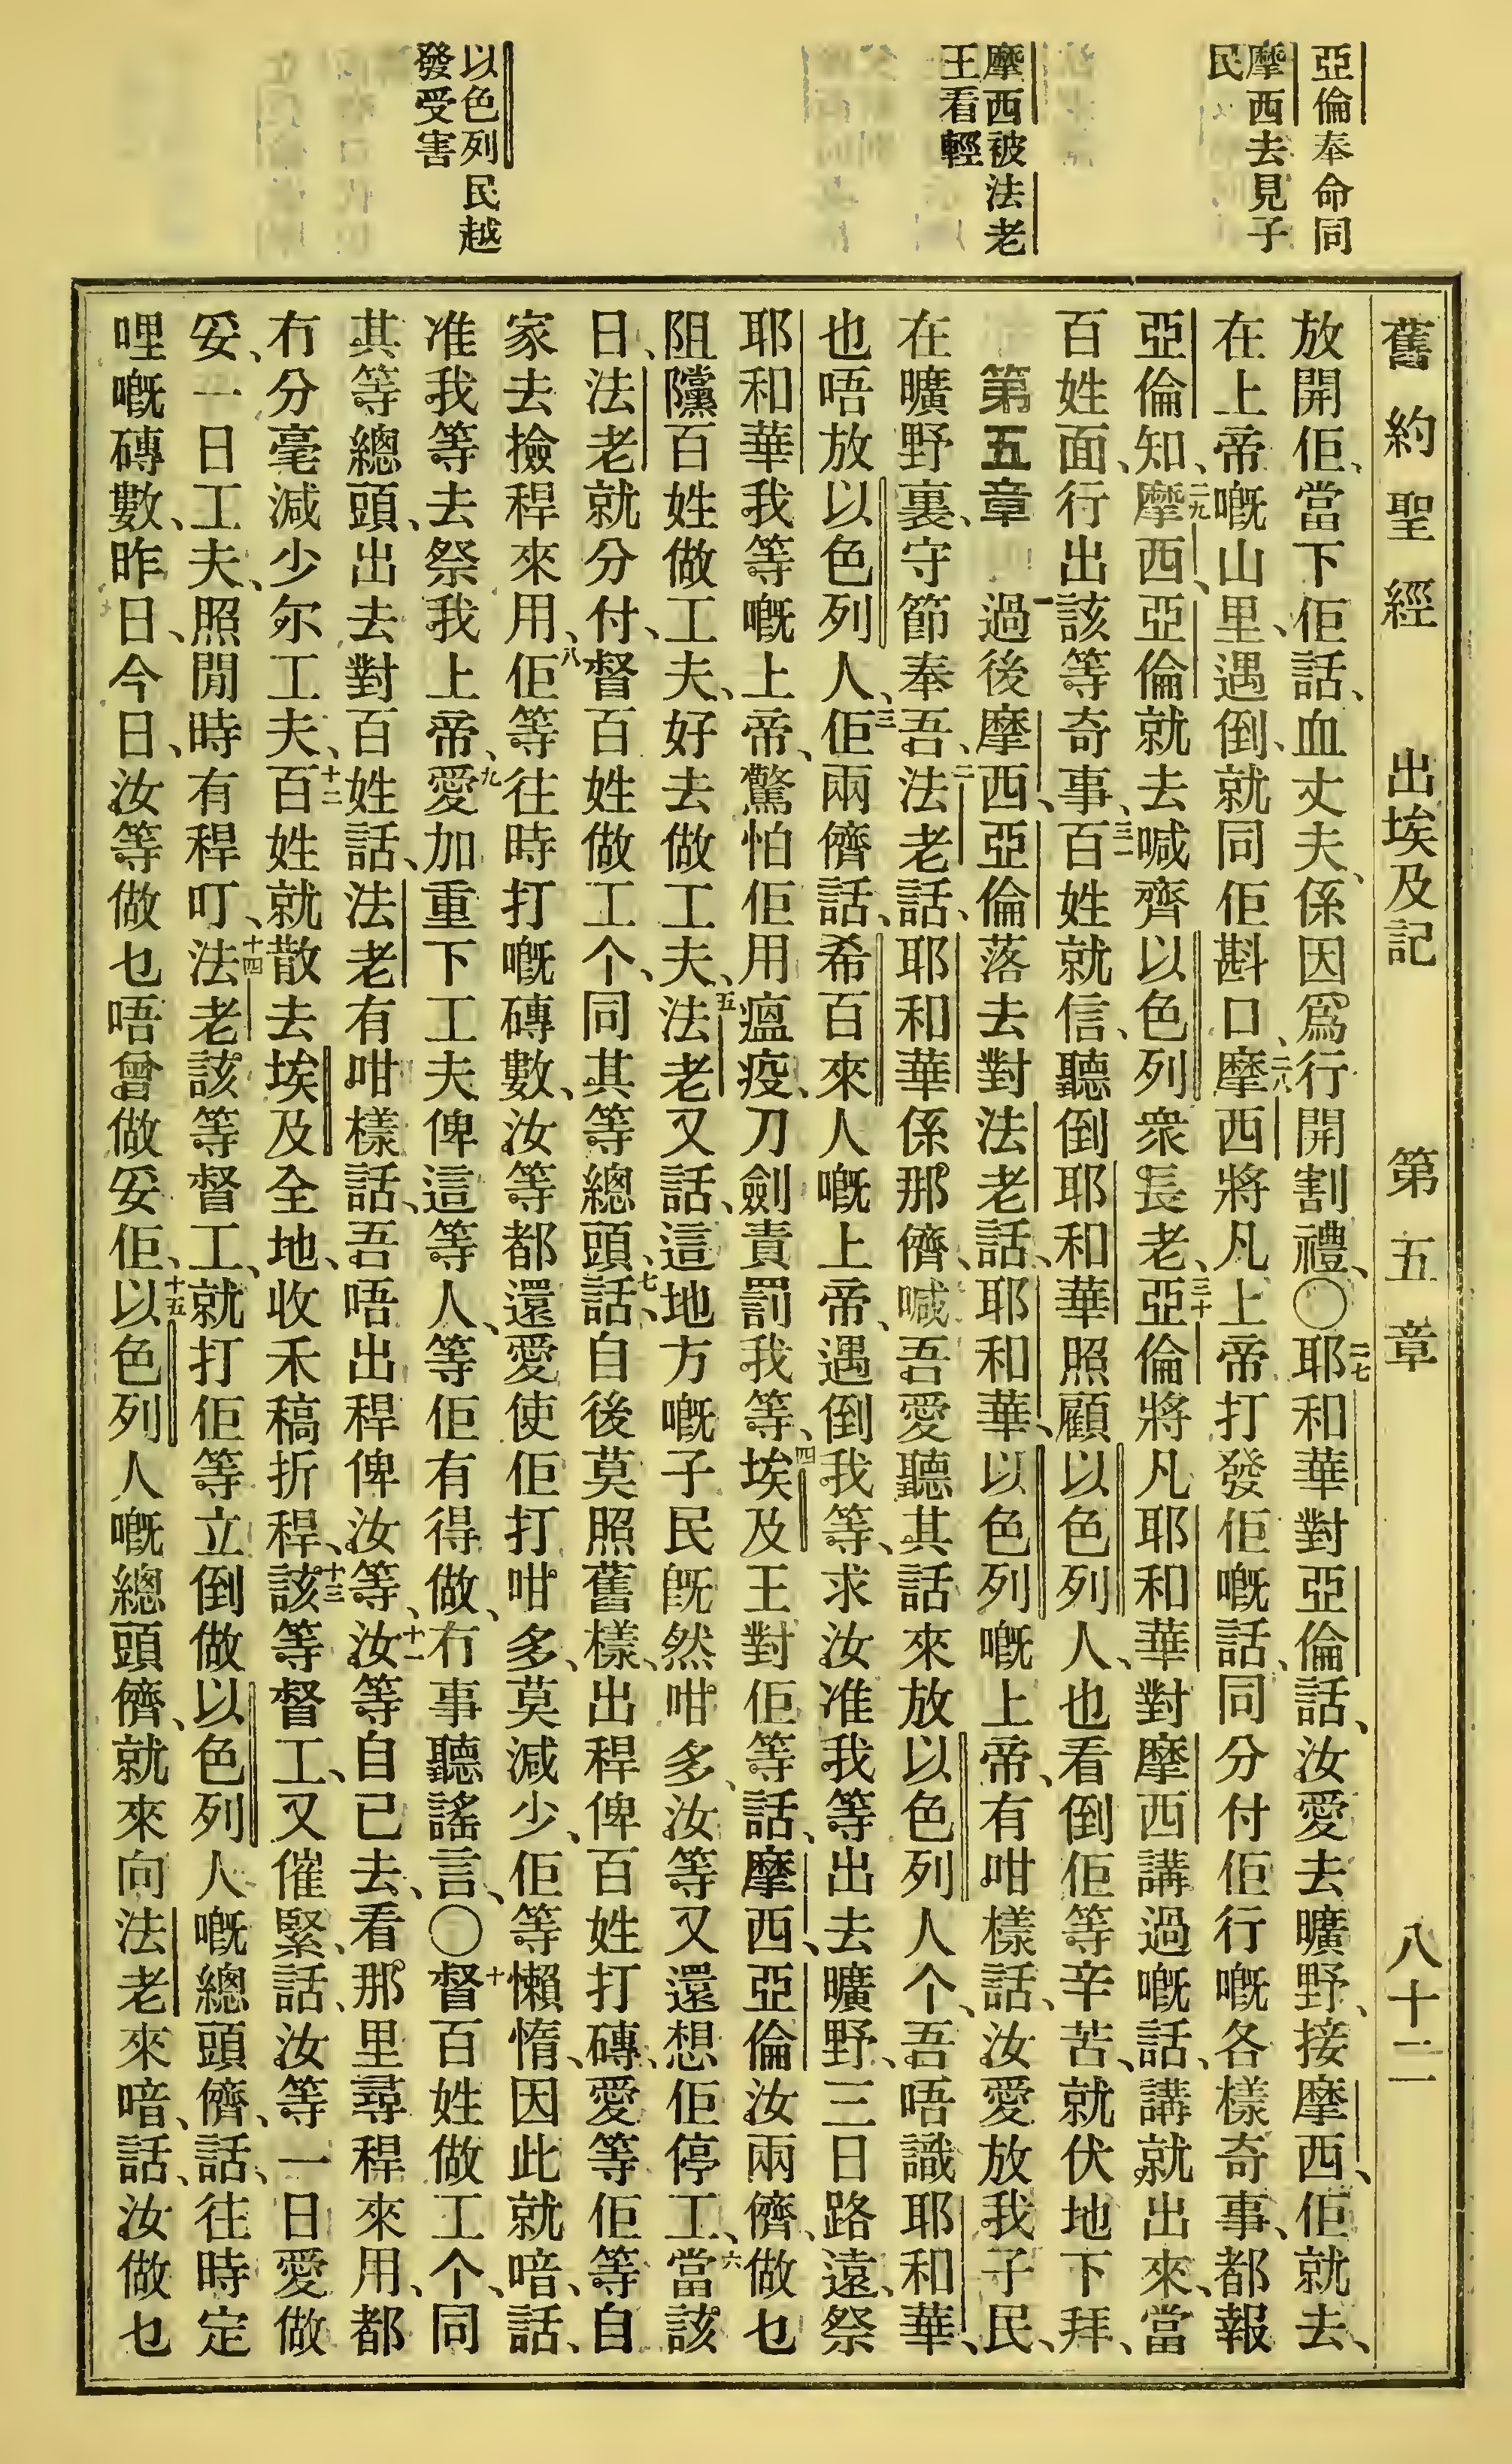 亞倫奉命同
摩西去見子
民
摩西被法老
王看輕
以色列民越
發受害
舊約聖經 出埃及記 第五章 八十二
放開佢、當下佢話、血丈夫、係因爲行開割禮、〇二七耶和華對亞倫話、汝愛去曠野、接摩西、佢就去、
在上帝嘅山里、遇倒、就同佢斟口、二八摩西將凡上帝打發佢嘅話、同分付佢行嘅各樣奇事、都報
亞倫知、二九摩西、亞倫就去喊齊以色列衆長老、三十亞倫將凡耶和華對摩西講過嘅話、講就出來、當
百姓面、行出該等奇事、三一百姓就信、聽倒耶和華照顧以色列人、也看倒佢等辛苦、就伏地下拜、
第五章 一過後摩西、亞倫落去對法老話、耶和華、以色列嘅上帝、有咁樣話、汝愛放我子民、
在曠野裏、守節奉吾、二法老話、耶和華係那儕、喊吾愛聽其話來放以色列人个、吾唔識耶和華、
也唔放以色列人、三佢兩儕話、希百來人嘅上帝、遇倒我等、求汝准我等出去曠野、三日路遠、祭
耶和華我等嘅上帝、驚怕佢用瘟疫、刀劍責罰我等、四埃及王對佢等話、摩西、亞倫汝兩儕、做乜
阻攩百姓做工夫、好去做工夫、五法老又話、這地方嘅子民旣然咁多、汝等又還想佢停工、六當該
日、法老就分付、督百姓做工个、同其等總頭、七話、自後莫照舊樣、出稈俾百姓打磚、愛等佢等自
家去撿稈來用、八佢等往時打嘅磚數、汝等都還愛使佢打咁多、莫減少、佢等懶惰、因此就喑、話、
准我等去祭我上帝、九愛加重下工夫俾這等人、等佢有得做、冇事聽謠言、〇十督百姓做工个、同
其等總頭、出去對百姓話、法老有咁樣話、吾唔出稈俾汝等、十一汝等自己去、看那里尋稈來用、都
冇分毫減少尔工夫、十二百姓就散去埃及全地、收禾稿折稈、十三該等督工、又催緊、話、汝等一日愛做
妥、一日工夫、照閒時有稈叮、十四法老該等督工、就打佢等立倒做以色列人嘅總頭儕、話、往時定
哩嘅磚數、昨日、今日、汝等做乜唔曾做妥佢、十五以色列人嘅總頭儕、就來向法老來喑、話、汝做乜